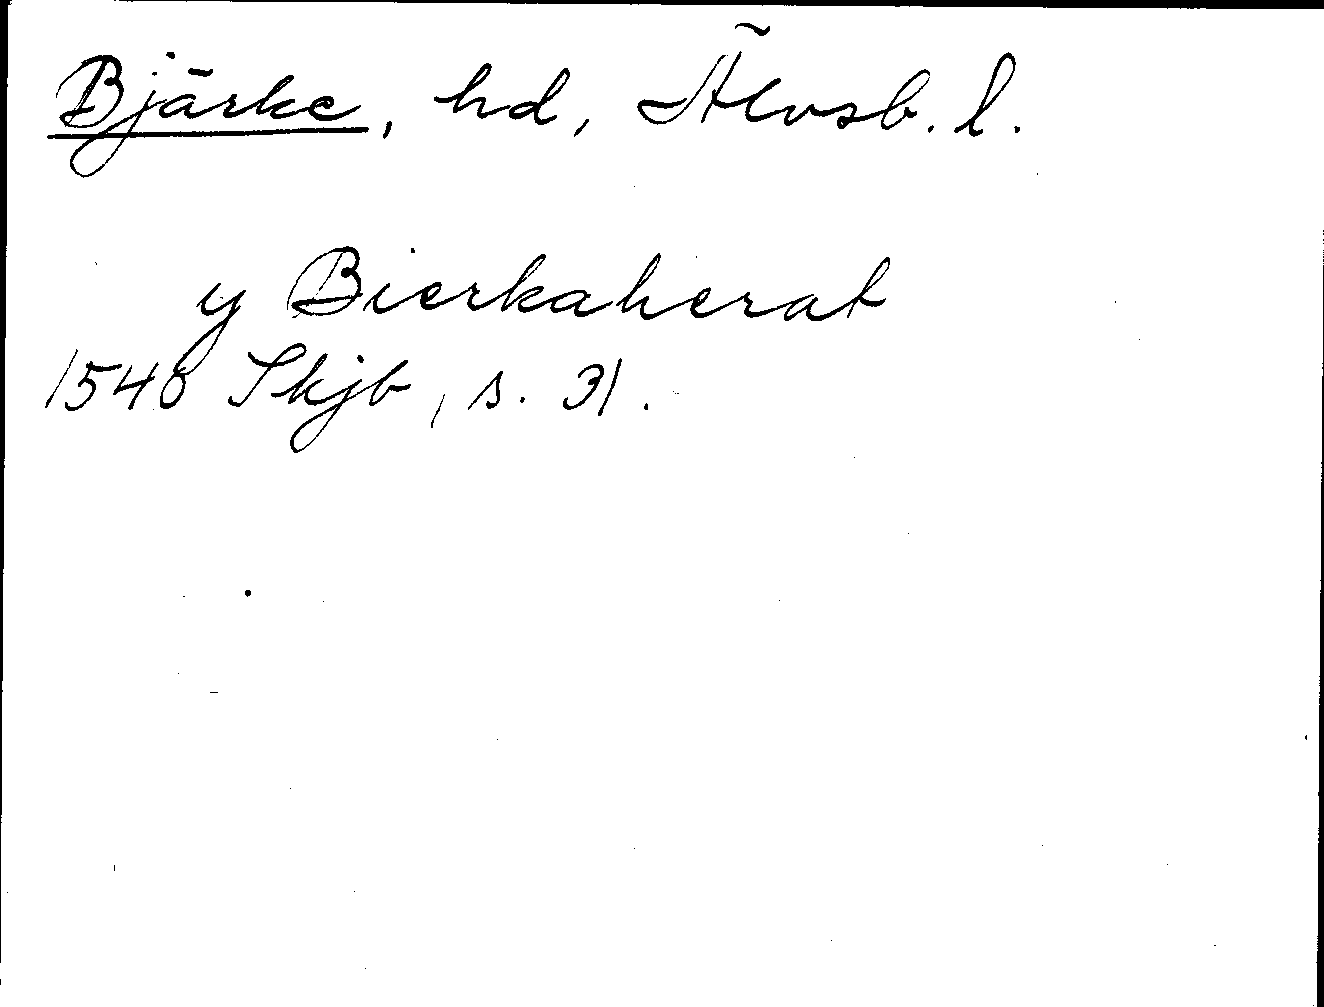 Bjärke, hd, Älvsb. l.
y Bierkaherat
1540 Skjb, s. 31.